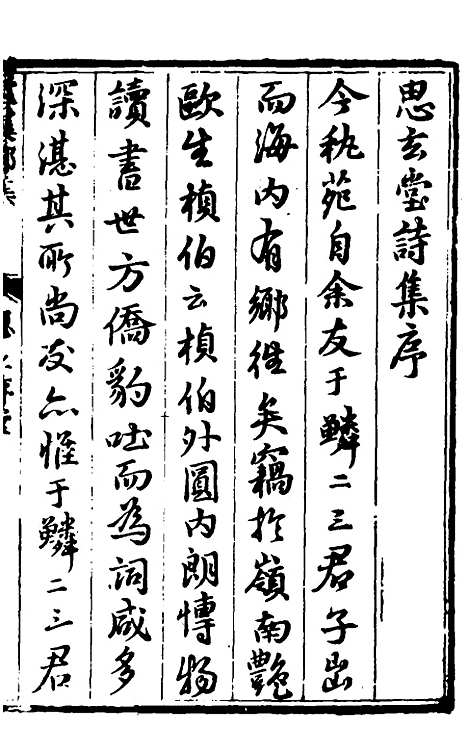 思玄堂詩集序
今秇苑自余友于鱗二三君子出
而海内有鄉徃矣竊扵嶺南艷
歐生楨伯云楨伯外圓内朗慱物
讀書世方僑豹吐而為詞咸多
深湛其所尚友亦惟于鱗二三君